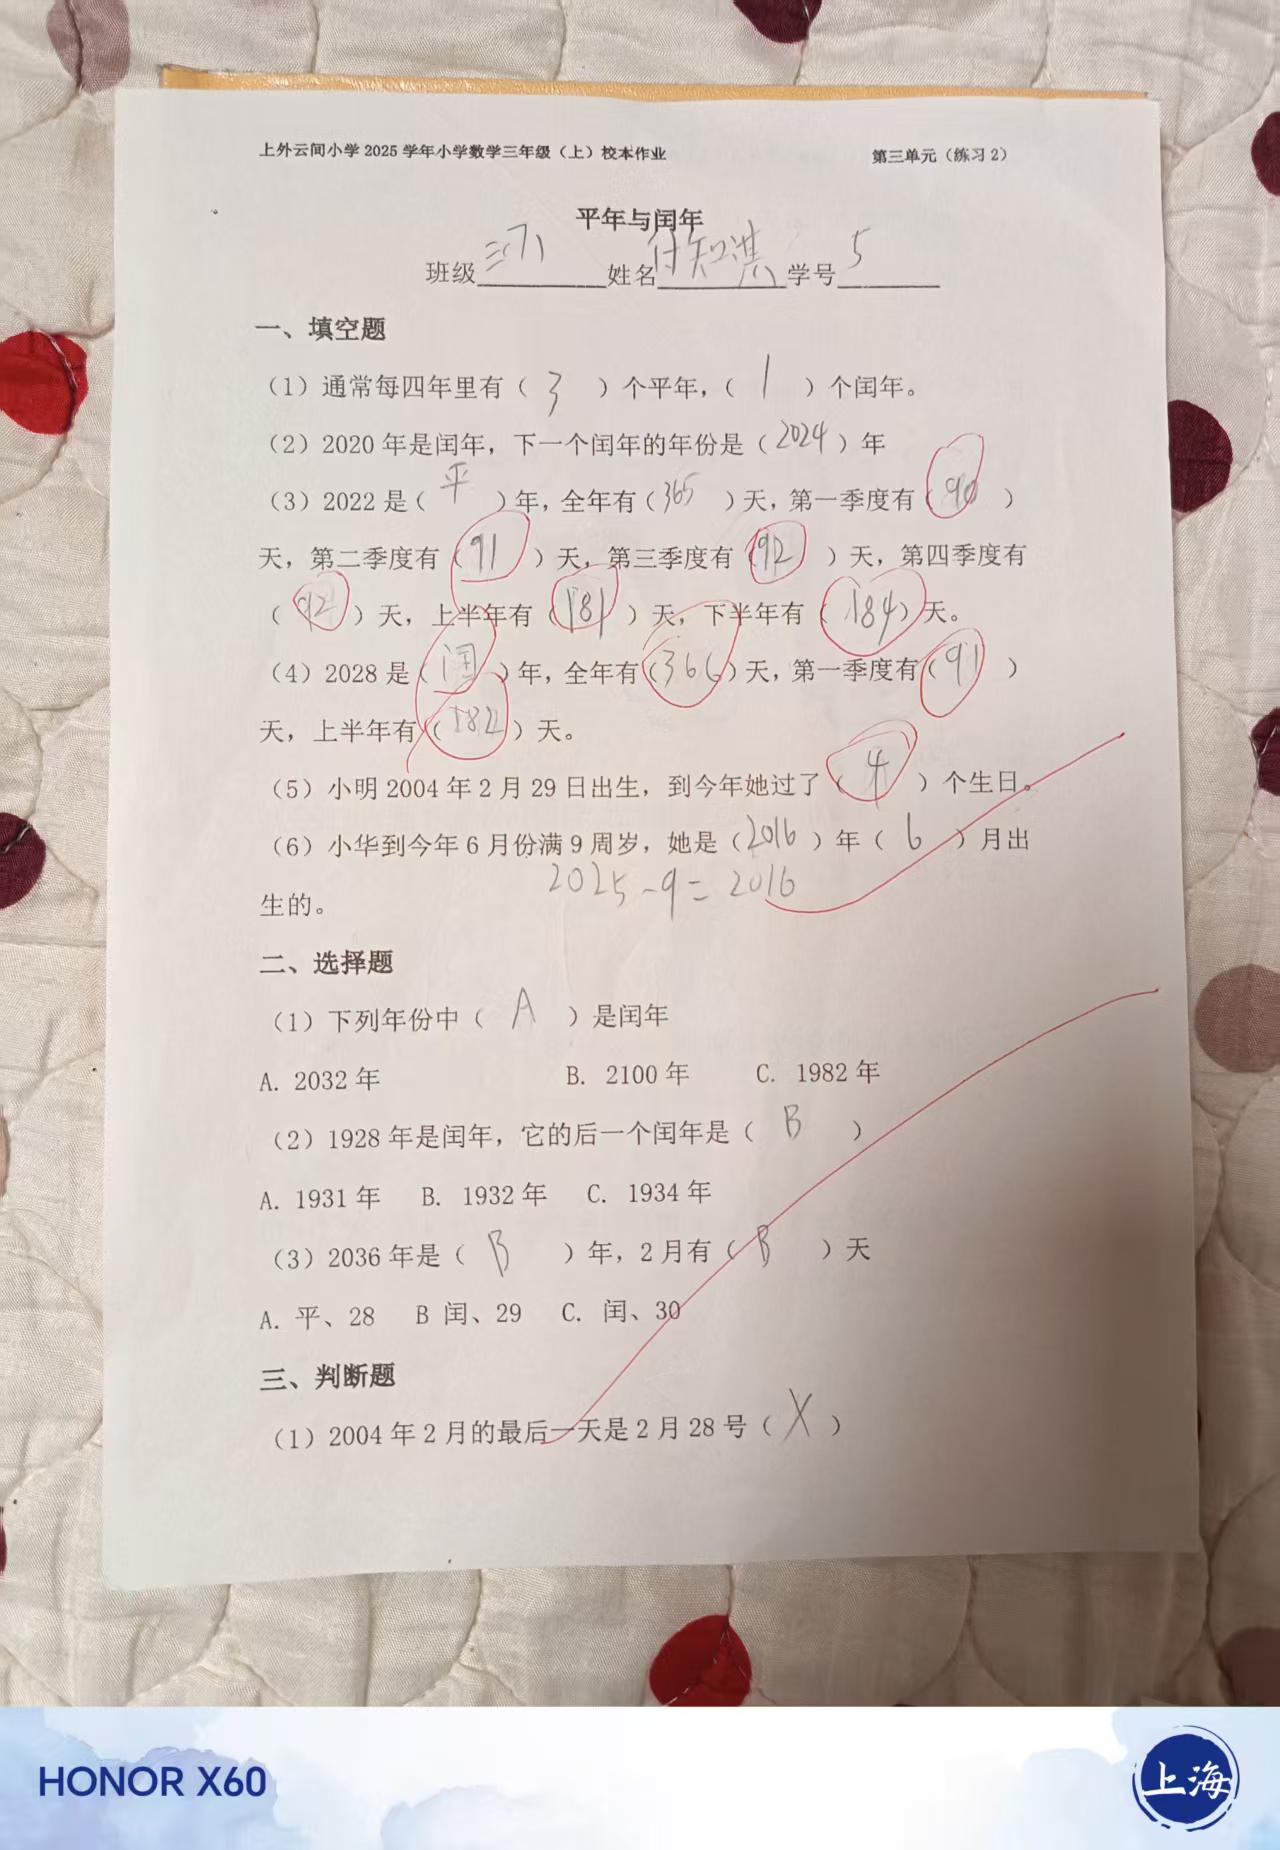 上外云间小学2025学年小学数学三年级（上）校本作业 第三单元（练习2）
平年与闰年
班级三(7) 姓名付知淇 学号5
一、填空题
（1）通常每四年里有（3）个平年，（1）个闰年。
（2）2020年是闰年，下一个闰年的年份是（2024）年
（3）2022是（平）年，全年有（365）天，第一季度有（90）
天，第二季度有（91）天，第三季度有（92）天，第四季度有
（92）天，上半年有（181）天，下半年有（184）天。
（4）2028是（闰）年，全年有（366）天，第一季度有（91）
天，上半年有（182）天。
（5）小明2004年2月29日出生，到今年她过了（4）个生日。
（6）小华到今年6月份满9周岁，她是（2016）年（6）月出
2025-9=2016
生的。
二、选择题
（1）下列年份中（A）是闰年
A. 2032年 B. 2100年 C. 1982年
（2）1928年是闰年，它的后一个闰年是（B）
A. 1931年 B. 1932年 C. 1934年
（3）2036年是（B）年，2月有（B）天
A. 平、28 B 闰、29 C. 闰、30
三、判断题
（1）2004年2月的最后一天是2月28号（X）
HONOR X60
上海